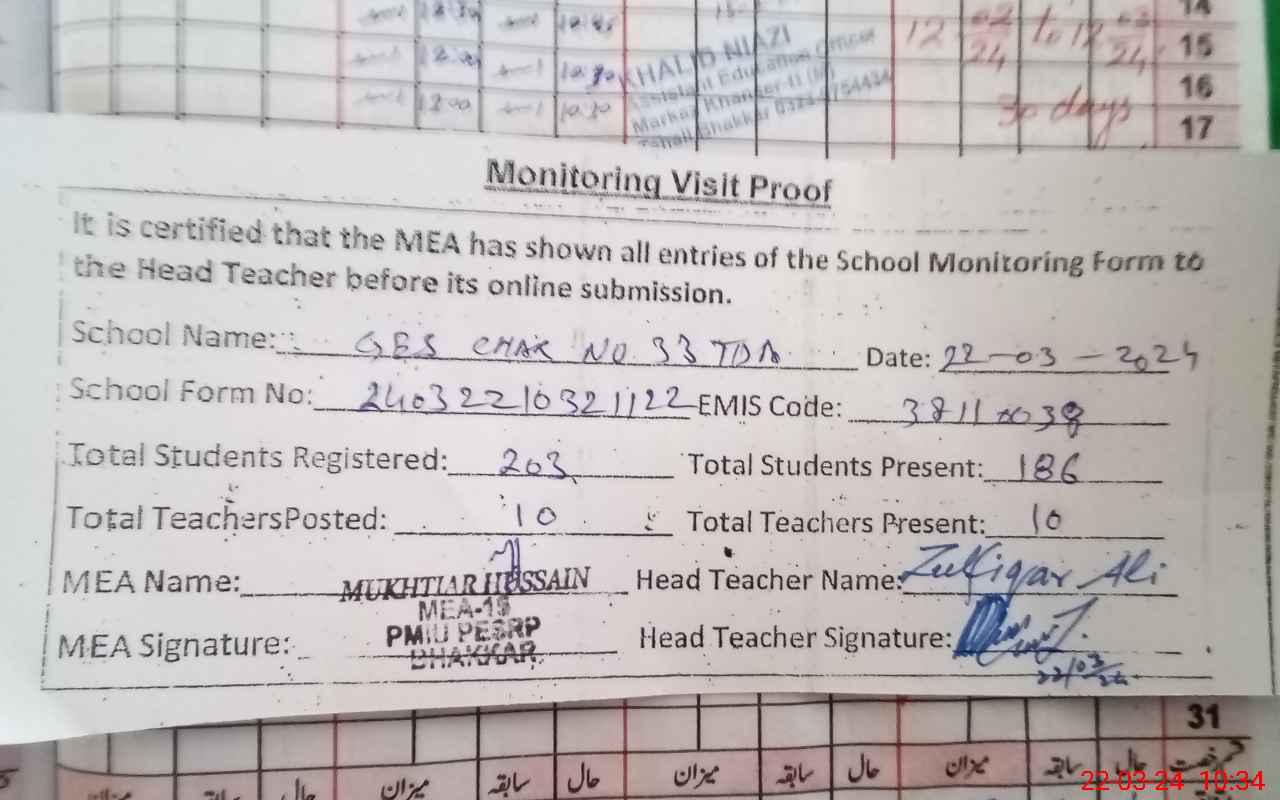 14
12 02/24 to 12 03/24 15
KHALID NIAZI
Assistant Education Officer
16
Markaz Khanser-II (M)
30 days
Tehsil Bhakkar
17
Monitoring Visit Proof
It is certified that the MEA has shown all entries of the School Monitoring Form to
the Head Teacher before its online submission.
School Name: GES CHAK NO. 33 TDA Date: 22-03-2024
School Form No: 240322210321122 EMIS Code:
Total Students Registered: 203 Total Students Present: 186
Total TeachersPosted: 10 Total Teachers Present: 10
MEA Name: MUKHTIAR HUSSAIN Head Teacher Name: Zulfiqar Ali
MEA-15
PMIU PESRP
BHAKKAR
MEA Signature: Head Teacher Signature:
22/03/24
31
میزان سابقہ حال میزان سابقہ حال میزان سابقہ حال
22-03-24 10:34